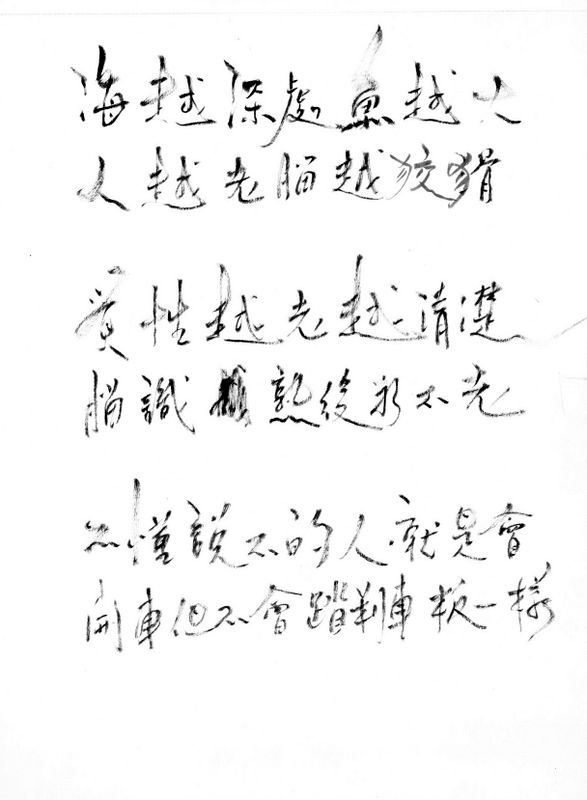 海越深處魚越大
人越老腦越狡猾
質性越老越清楚
腦識熟後永不老
不懂說不的人就是會
開車但不會踏剎車板一樣